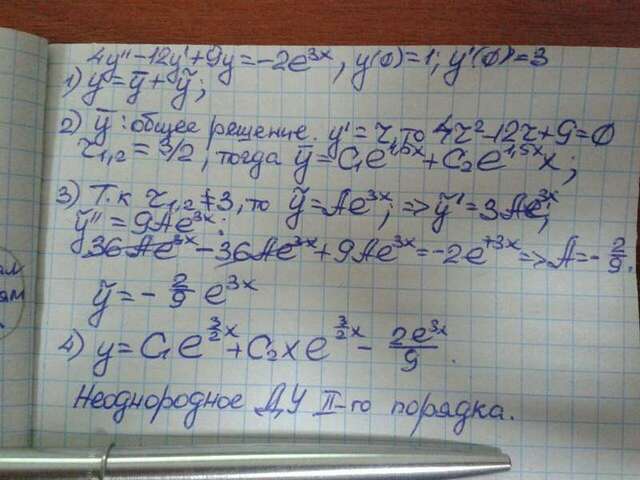 4y''-12y'+9y=-2e^{3x}, y(0)=1; y'(0)=3
1) y=ȳ+ỹ;
2) ȳ: общее решение. y'=r, то 4r²-12r+9=0
r_{1,2}=3/2, тогда ȳ=C₁e^{1,5x}+C₂e^{1,5x}x;
3) Т.к r_{1,2}≠3, то ỹ=Ae^{3x}; => ỹ'=3Ae^{3x};
ỹ''=9Ae^{3x};
36Ae^{3x}-36Ae^{3x}+9Ae^{3x}=-2e^{+3x}=>A=-2/9.
ỹ=-2/9 e^{3x}
4) y=C₁e^{3/2x}+C₂xe^{3/2x}-2e^{3x}/9.
Неоднородное ДУ II-го порядка.